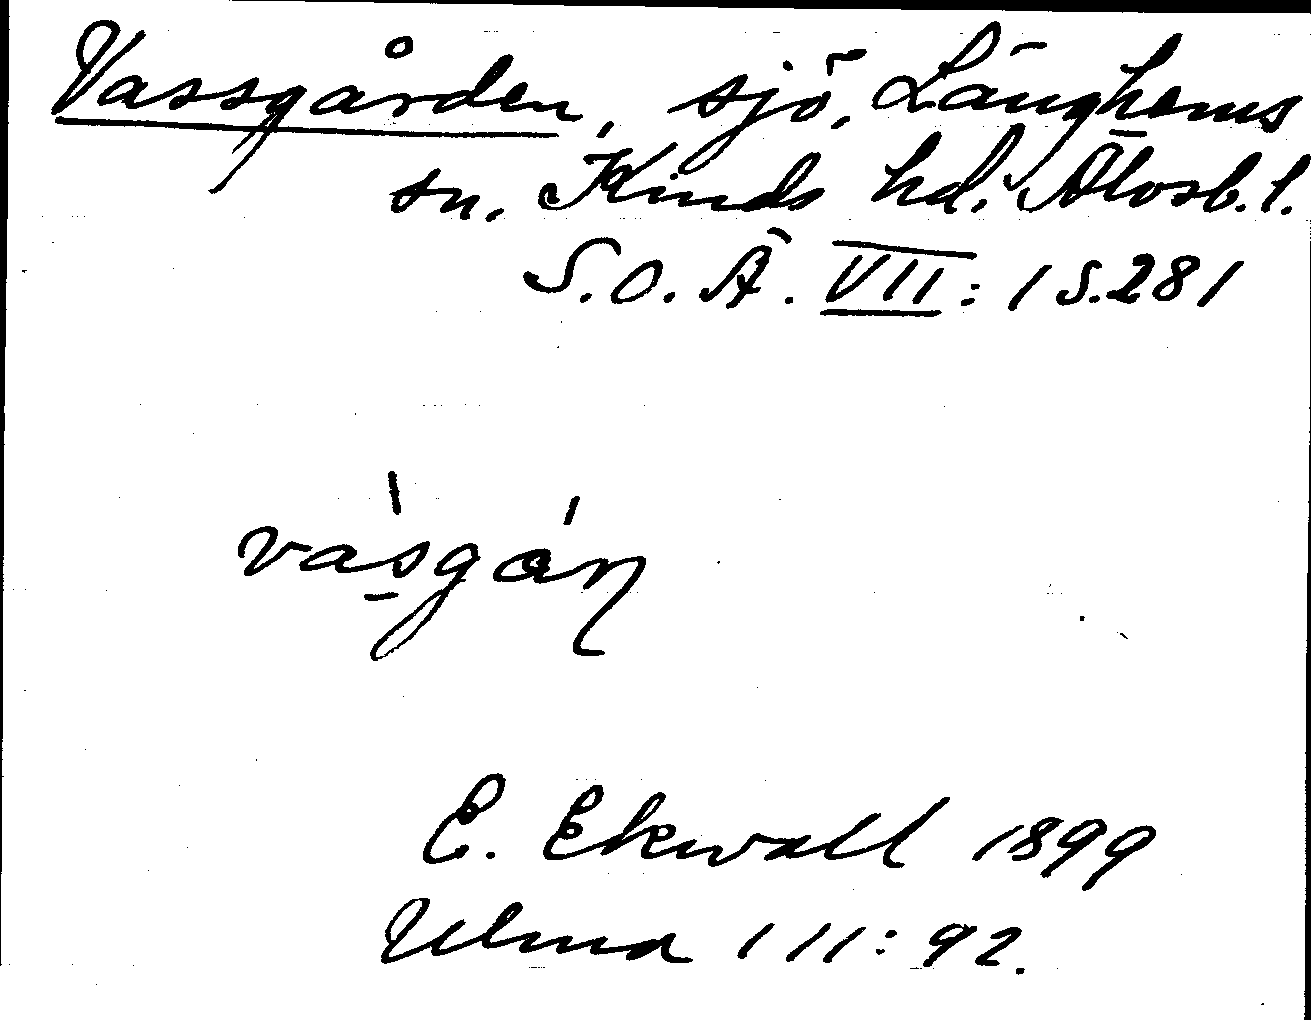 Vassgården, sjö, Länghems
sn. Kinds hd. Älvsb. l.
S.O.Ä. VII: 1 S. 281
E. Ekwall 1899
Ulma 111:92.